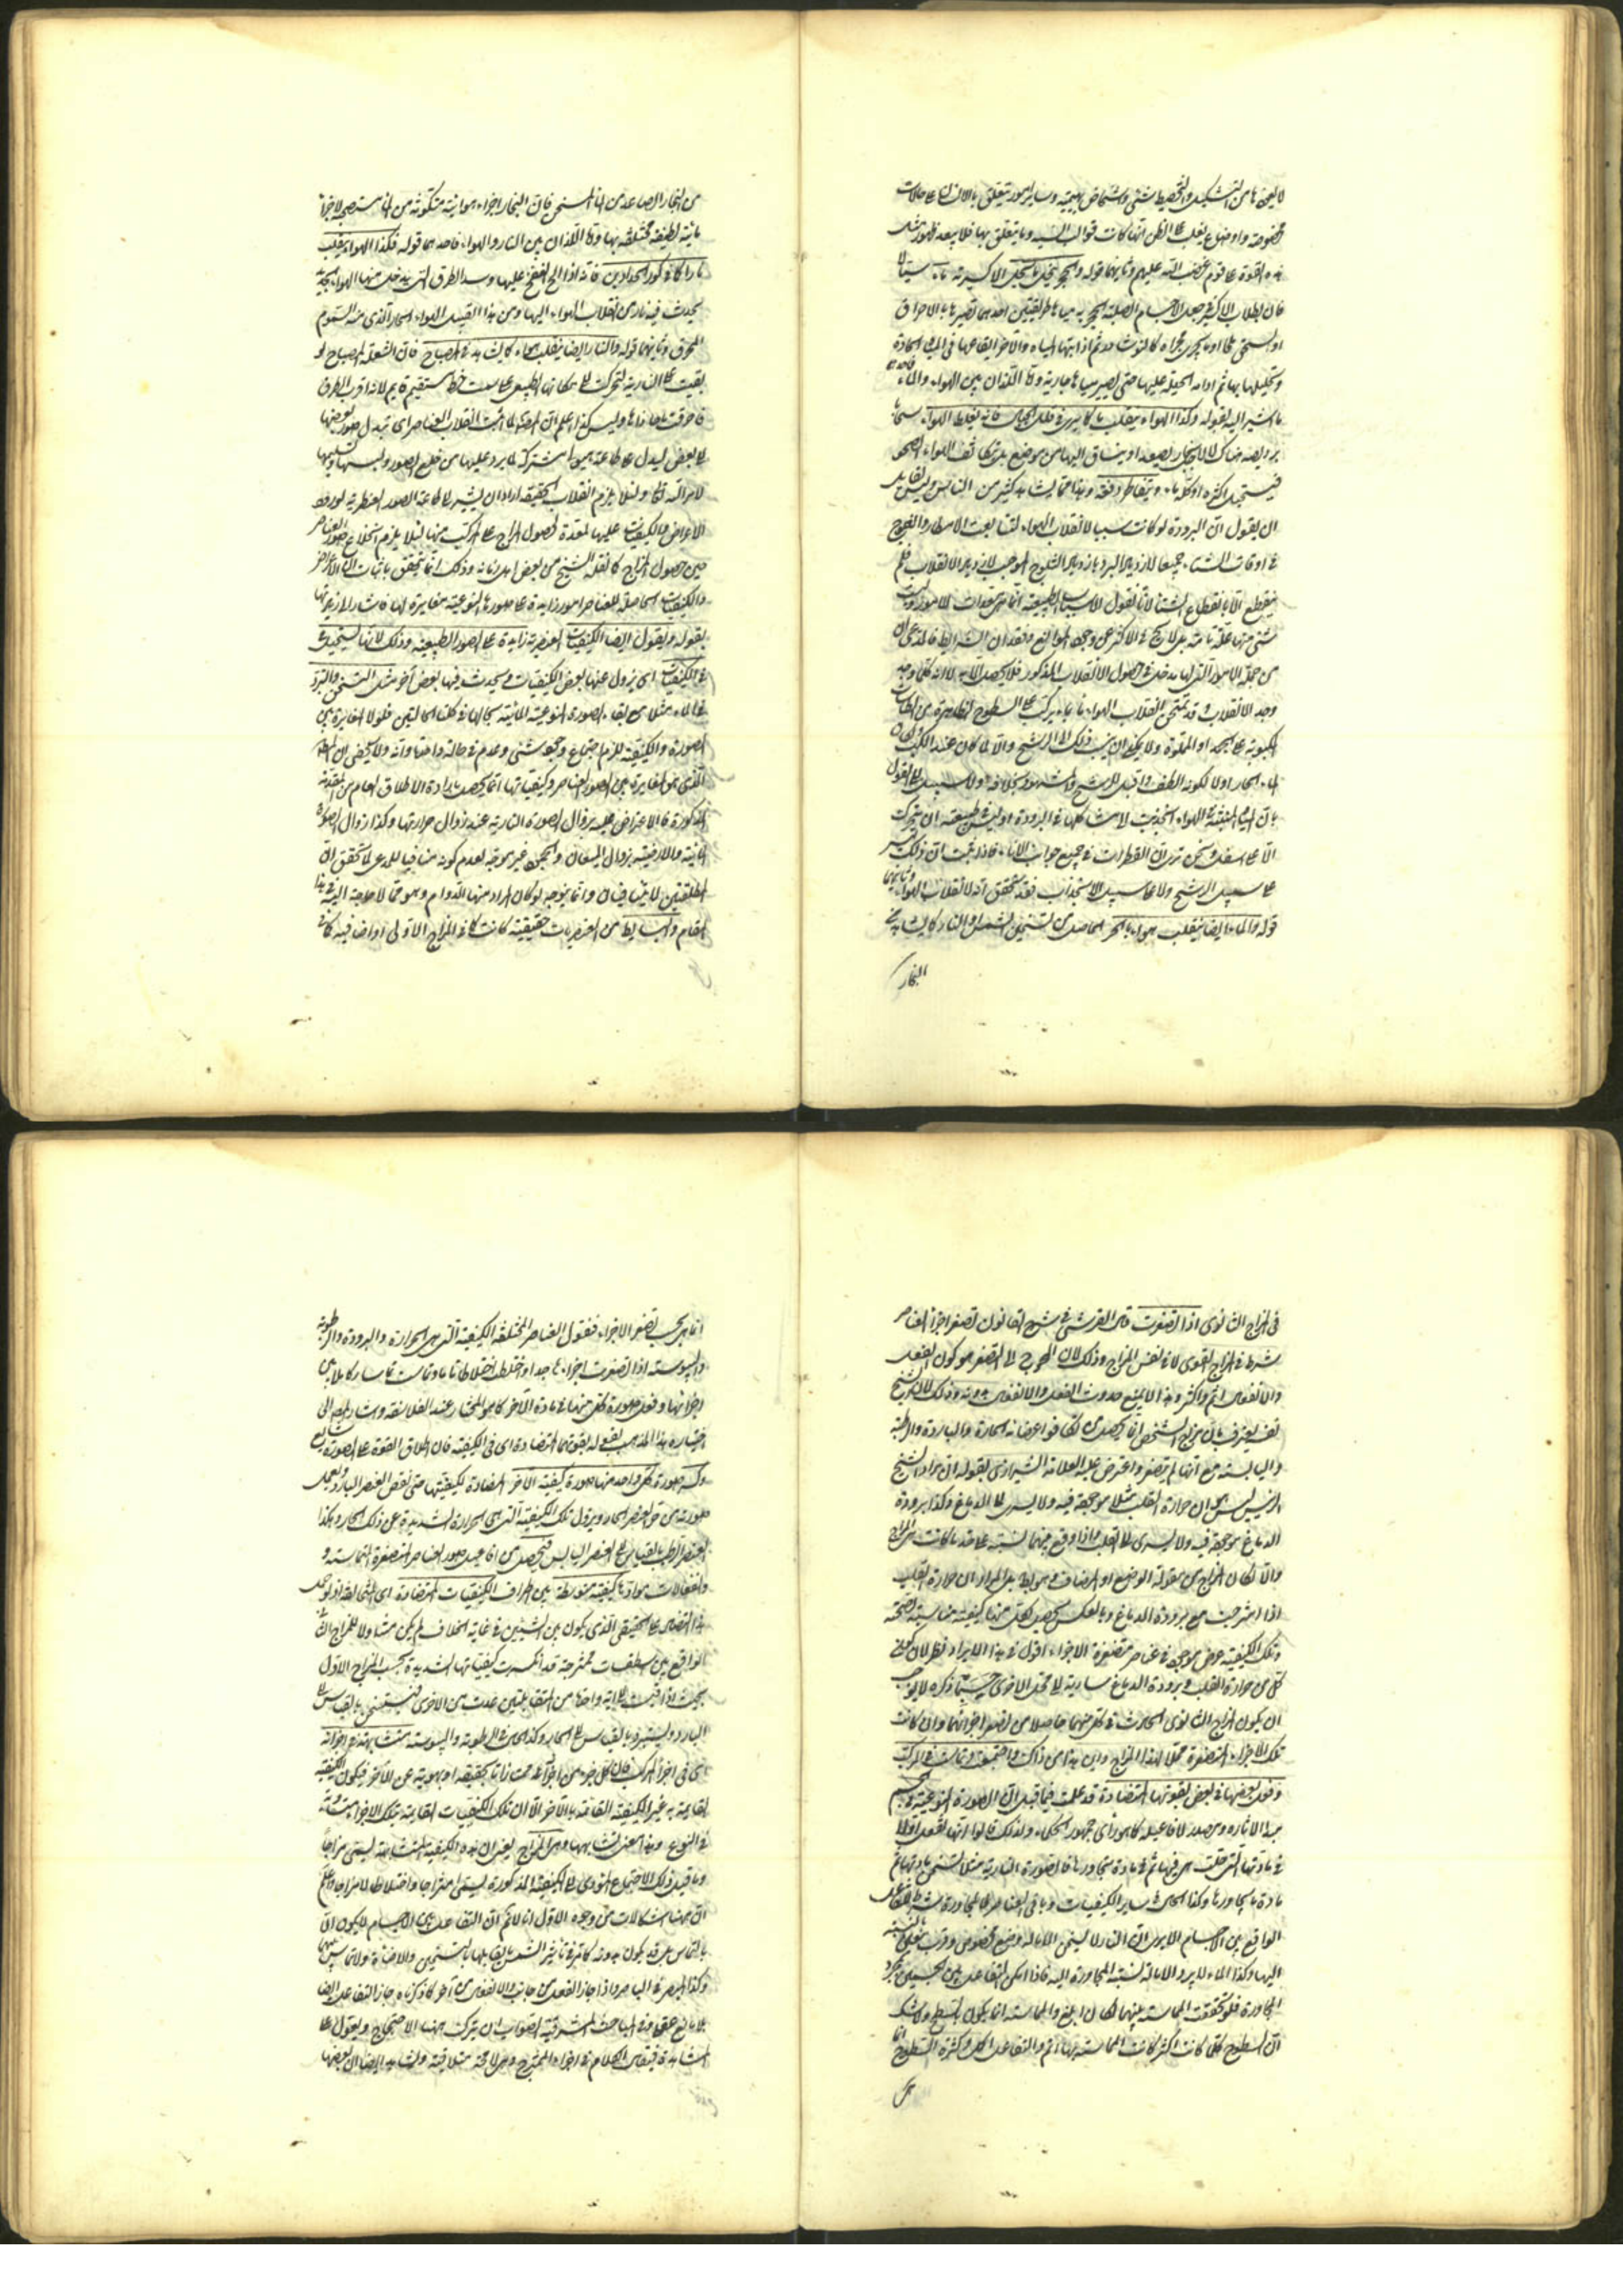 لا يليق بها من التشكيل والتخطيط شتى واشخاص بهيمية وسائر امور تتعلق بالانسان على حالات
مخصوصة واوضاع يغلب على الظن انها كانت قوالب انسية وما يتعلق بها فلا يبعد ظهور مثل
هذه القوة على قوم غضب الله عليهم وثانيهما قوله والحجر ينحل بالحيل الاكسيرية ماء سيالا
فان لطلاب الاكسير في جعل الاجسام الصلبة الحجرية مياها طريقتين احدهما تصييرها بالاحراق
او السحق ملحا او ما يجري مجراه كالنوشادر ثم اذابتها بالمياه والآخر القاءها في المياه الحادة
وتحليلها بها ثم ادامة الحيلة عليها حتى تصير مياها جارية واما اللذان بين الهواء والماء فاحدهما
ما اشير اليه بقوله وكذا الهواء ينقلب ماء كما يرى في قلل الجبال فانه يغلظ الهواء سحابا
لبرد يصيبه هناك لا لانجار يصعد او ينساق اليها من موضع بل تكاثف الهواء الصحو
فيستحيل اكثره او كله ماء ويتقاطر دفعة وهذا مما يشاهده كثير من الناس وليس لقائل
ان يقول ان البرودة لو كانت سببا لانقلاب الهواء لتتابعت الامطار والثلوج
في اوقات الشتاء جميعا لازدياد البرد بازدياد الثلوج الموجب لازدياد الانقلاب فلم
ينقطع الا بانقطاع الشتاء لانا نقول الاسباب الطبيعية انما هي معدات للامور وليست
شئ منها علة تامة بل لا يرجح في الاكثر عن وجود الموانع وفقدان الشرايط فالمدعى ان
من جملة الامور التي لها مدخل في حصول الانقلاب المذكور فلا يحصل الا به لا انه كلما وجد
وجد الانقلاب وقد يمتحن انقلاب الهواء ماء بما يركب على السطوح الظاهرة من الطاسات
المكبوبة على الجمد او المملوة ولا يمكن ان ينسب ذلك الى الرشح والا لما كان عند الكب
الماء الحار اولى لكونه الطف واقبل للرشح والمشهور بخلافه ولا سبيل الى القول
بان المياه المنبثة في الهواء انجذبت الى مشاكلها في البرودة اذ ليس في طبيعته ان يتحرك
الا على اسفل ونحن نرى ان القطرات في جميع جوانب الاناء فاذا ثبت ان ذلك ليس
على سبيل الرشح ولا على سبيل الانجذاب فقد تحقق انه لانقلاب الهواء وثانيهما
قوله والماء ايضا ينقلب هواء بالحر الحاصل من تسخين الشمس او النار كما يشاهد في
البخار
من البخار الصاعد من الماء المسخن فان البخار اجزاء هوائية متكونة من الماء مستصحبة لاجزاء
مائية لطيفة مختلطة بها واما اللذان بين النار والهواء فاحدهما قوله فكذا الهواء ينقلب
نارا كما في كور الحدادين فانه اذا الح النفخ عليها وسد الطرق التي يدخل منها الهواء الجديد
يحدث فيه نار من انقلاب الهواء اليها ومن هذا القبيل الهواء الحار الذي منه السموم
المحرق وثانيهما قوله والنار ايضا ينقلب هواء كما يشاهد في المصباح فان الشعلة المصباح لو
بقيت على النارية لتحركت الى مكانها الطبيعي على سمت خط مستقيم قايم لانه اقرب الطرق
فاحرقت ما حاذاها وليس كذا اعلم ان المص لما اثبت انقلاب العناصر اى تبدل صور بعضها
الى بعض ليدل على ان طاعة هيولى مشتركة لما يرد عليها من خلع الصور ولبسها وتسليمها
لامر الله تعالى ولئلا يلزم انقلاب الحقيقة اراد ان يشير الى طاعة الصور العنصرية لورود
الاعراض والكيفيات عليها المعدة لحصول المزاج على المركب منها لئلا يلزم انخلاع صور العناصر
حين حصول المزاج كما نقله الشيخ من بعض اهل زمانه وذلك انما يتحقق باثبات ان الاعراض
والكيفيات الحاصلة للعناصر امور زايدة على صورها النوعية مغايرة لها فاشار الى ازيديتها
بقوله ونقول ايضا الكيفيات العنصرية زايدة على الصور الطبيعية وذلك لانها تستحيل
في الكيفيات اى يزول عنها بعض الكيفيات ويحدث فيها بعض آخر مثل التسخن والتبرد
في الماء مثلا مع بقاء الصورة النوعية المائية بحالها في كلتا الحالتين فلولا المغايرة بين
الصورة والكيفية للزم اجتماع وجود شئ وعدم في حالة واحدة وانه ولا يخفى ان المطلوب
الذى هو المغايرة بين الصور العناصر وكيفياتها انما يحصل بارادة الاطلاق العام من المقدمة
المذكورة فالاعتراض عليه بزوال الصورة النارية عند زوال حرارتها وكذا زوال الصورة
المائية والارضية بزوال الميعان والجمود غير موجه لعدم كونه منافيا للمدعى لما تحقق ان
المطلقتين لا يتنافيان وانما يتوجه لو كان المراد منها الدوام وهو مما لا حاجة اليه في هذا
المقام والبسايط من العنصريات حقيقية كانت كما في المزاج الاولى او اضافية كما في
في المزاج الثانوى اذا تصغرت قال القرشى في شرح القانون تصغر اجزاء العناصر
شرط في المزاج القوى لا في نفس المزاج وذلك لان المحوج الى التصغر هو كون الفعل
والانفعال اتم واكثر وهذا لا يمنع حدوث الفعل والانفعال بدونه وذلك لان الشيخ
نفسه يعترف بان مزاج الشخص انما يحصل من تكافؤ اعضائه الحارة والباردة والرطبة
واليابسة مع انها لم تتصغر واعترض عليه العلامة الشيرازى بقوله ان مراد الشيخ
الرئيس ليس هو ان حرارة القلب مثلا موجودة فيه ولا يسرى الى الدماغ وكذا برودة
الدماغ موجودة فيه ولا يسرى الى القلب واذا وقع بينهما نسبة على قدر ما كانت هي المزاج
والا لكان المزاج من مقولة الوضع او المضاف وهو باطل بل المراد ان حرارة القلب
اذا امتزجت مع برودة الدماغ وبالعكس يحصل لكل منهما كيفية مناسبة لصحته
وتلك الكيفية عرض موجود في عناصر متصغرة الاجزاء اقول في هذا الايراد نظر لان كون
كل من حرارة القلب وبرودة الدماغ سارية الى محل الاخرى حسبما ذكره لا يوجب
ان يكون المزاج الثانوى الحادث في كل منهما حاصلا من تصغر اجزائهما وان كانت
تلك الاجزاء المتصغرة محلا لهذا المزاج واين هذا من ذاك واجتمعت وتماست في المركب
وفعل بعضها في بعض بقوتها المتضادة قد علمت فيما قبل ان الصورة النوعية في الجسم
مبدا لآثاره ومصدر لافاعيله كما هو راى جمهور الحكماء ولذلك قالوا انها تفعل اولا
في مادتها التي حلت هي فيها ثم في مادة مجاورها فالصورة النارية مثلا تسخن مادتها ثم
مادة ما يجاورها وكذا الحال في ساير الكيفيات وباقى العناصر فالمجاورة شرط للتفاعل
الواقع بين الاجسام الا يرى ان النار لا يسخن الا ما له وضع مخصوص وقرب معين بالنسبة
اليها وكذا الماء لا يبرد الا ما له نسبة المجاورة اليه فاذا امكن التفاعل بين الجسمين بمجرد
المجاورة فلو تحققت المماسة بينهما لكان ابلغ والمماسة انما يكون بالسطح ولا شك
ان السطوح كلما كانت اكثر كانت المماسة بها اتم والتفاعل اكمل وكثرة السطوح انما
هى
انما هي بحسب تصغر الاجزاء فنقول العناصر المختلفة الكيفية التي هي الحرارة والبرودة والرطوبة
واليبوسة اذا تصغرت اجزاءها جدا واختلط اختلاطا تاما وتماست تماسا كاملا بين
اجزائها وفعل صورة كل منها في مادة الآخر كما هو المختار عند الفلاسفة واشار المص الى
اختياره هذا المذهب بقوله بقوتها المتضادة اى في الكيفية فان اطلاق القوة على الصورة شايع
وكسر صورة كل واحد منها صورة كيفية الآخر المضادة لكيفيتها حتى نقص العنصر البارد بفعل
صورته من حر العنصر الحار ويزول تلك الكيفية التي هي الحرارة الشديدة عن ذلك الحار وهكذا
العنصر الرطب بالقياس الى العنصر اليابس فيحصل من افاعيل صور العناصر المتصغرة المتماسة و
وانفعالات موادها كيفية متوسطة بين اطراف الكيفيات المتضادة اى المتخالفة اذ لو حمل
هذا التضاد على الحقيقى الذى يكون بين الشيئين في غاية الخلاف لم يكن متناولا للمزاج الثانى
الواقع بين اسطقسات ممتزجة قد انكسرت كيفياتها الشديدة بحسب المزاج الاول
بحيث اذا قيست الى اية واحدة من المتقابلتين عدت من الاخرى فيستسخن بالقياس الى
البارد ويستبرد بالقياس الى الحار وكذا الحال في الرطوبة واليبوسة متشابهة في اجزائه
اى في اجزاء المركب فان كل جزء من اجزائه ممتاز اما بحقيقته او بهويته عن الآخر فيكون الكيفية
القايمة به غير الكيفية القائمة بالآخر الا ان تلك الكيفيات القايمة بتلك الاجزاء متساوية
في النوع وهذا معنى تشابهها وهى المزاج يعنى ان هذه الكيفية المتشابهة تسمى مزاجا
وما قبل ذلك الاجتماع المؤدى الى الكيفية المذكورة يسمى امتزاجا واختلاطا لا مزاجا واعلم
ان ههنا اشكالات من وجوه الاول انا لا نم ان التفاعل بين الاجسام لا يكون الا
بالتماس بل قد يكون بدونه كما ترى في تاثير الشمس بما يقابلها بالتسخين والاضاءة ولا تماس بينهما
وكذا المبصر في الباصر واذا جاز الفعل من جانب والانفعال من آخر كما ذكرناه جاز التفاعل ايضا
بلا مانع عقلى وفى المباحث المشرقية الصواب ان يترك ههنا الاحتجاج ويعول على
المشاهدة فيقال الكلام في اجزاء الممتزج وهى لا محة متلاقية ونشاهد ايضا ان بعضها